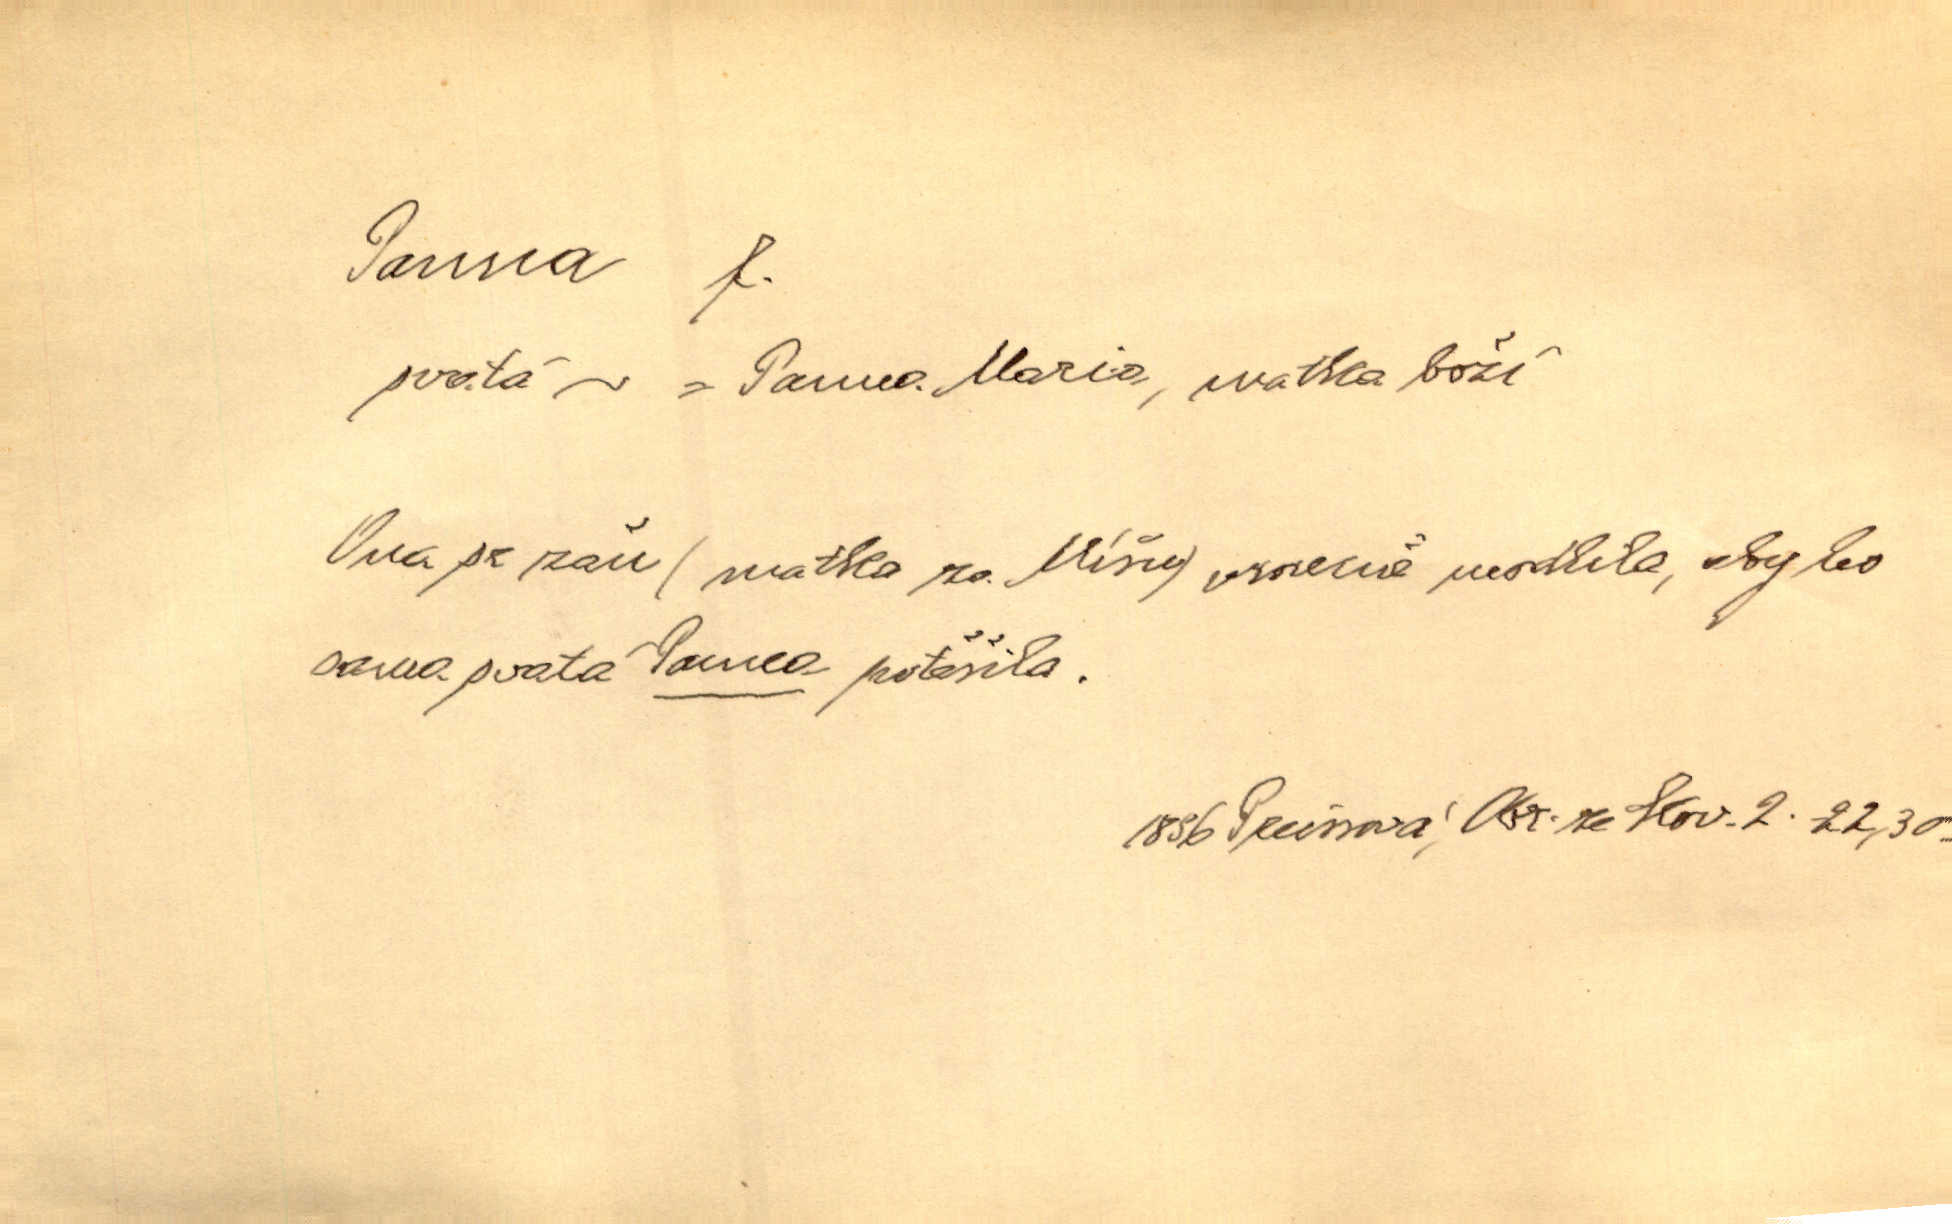 Panna f.
svatá ~ = Panna Maria, matka boží
Ona se zaň (matka za Míšu) vroucně modlila, aby ho
sama svatá Panna potěšila.
1886 Preissová, Obr. ze Slov. 2. 22,30